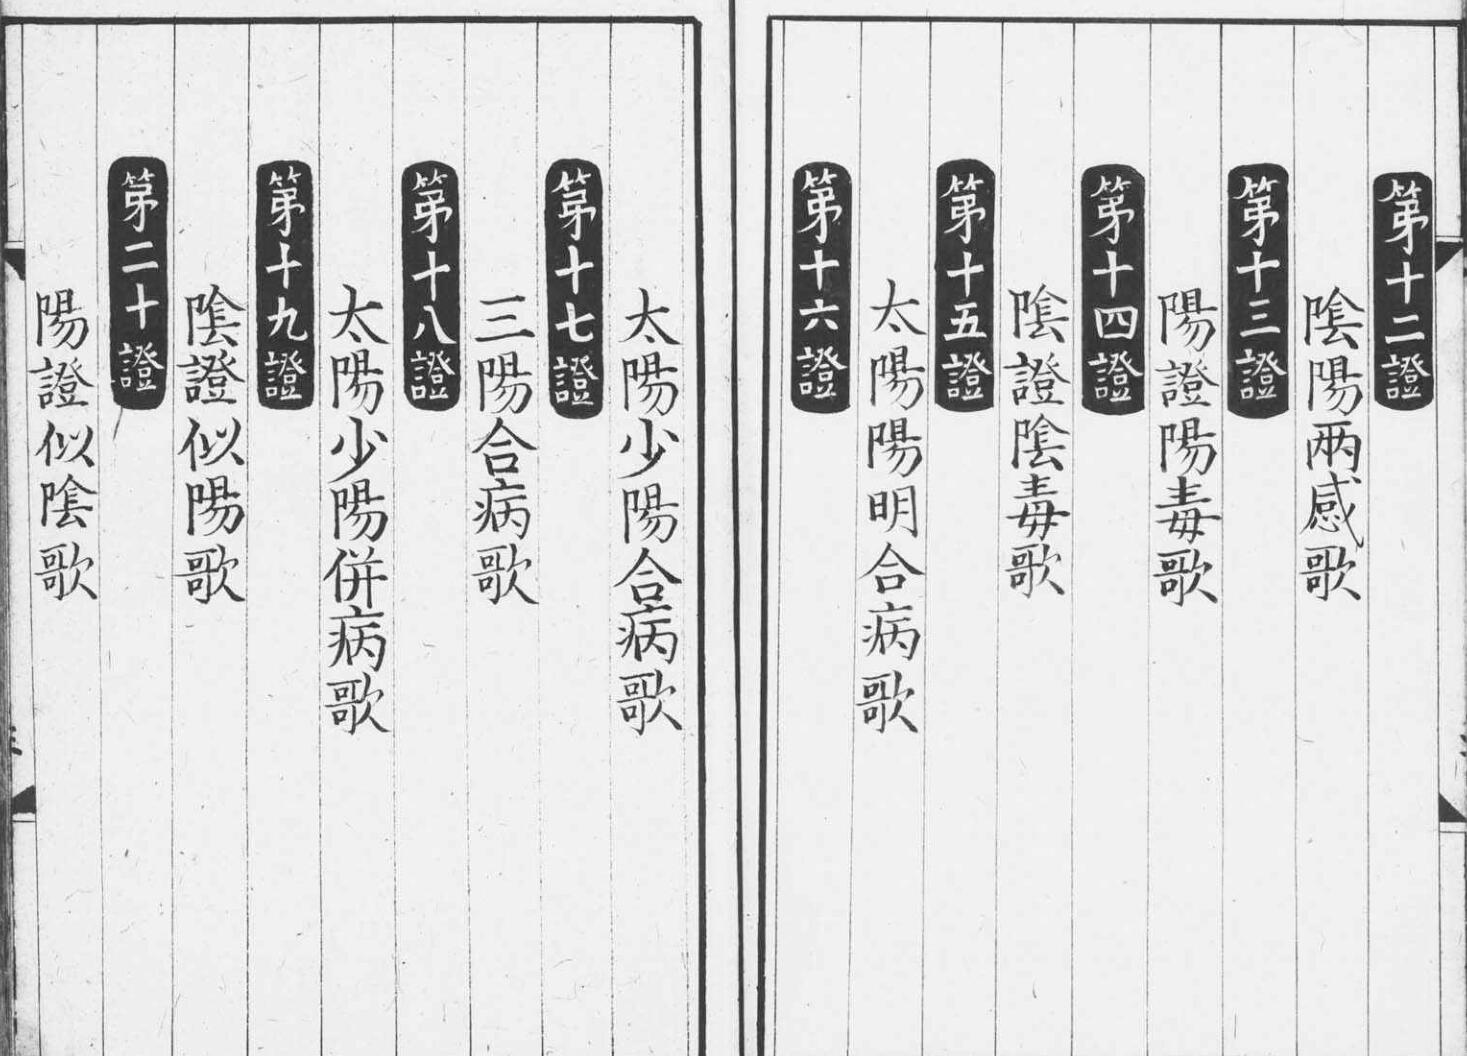 第十二證
陰陽兩感歌
第十三證
陽證陽毒歌
第十四證
陰證陰毒歌
第十五證
太陽陽明合病歌
第十六證
太陽少陽合病歌
第十七證
三陽合病歌
第十八證
太陽少陽併病歌
第十九證
陰證似陽歌
第二十證
陽證似陰歌